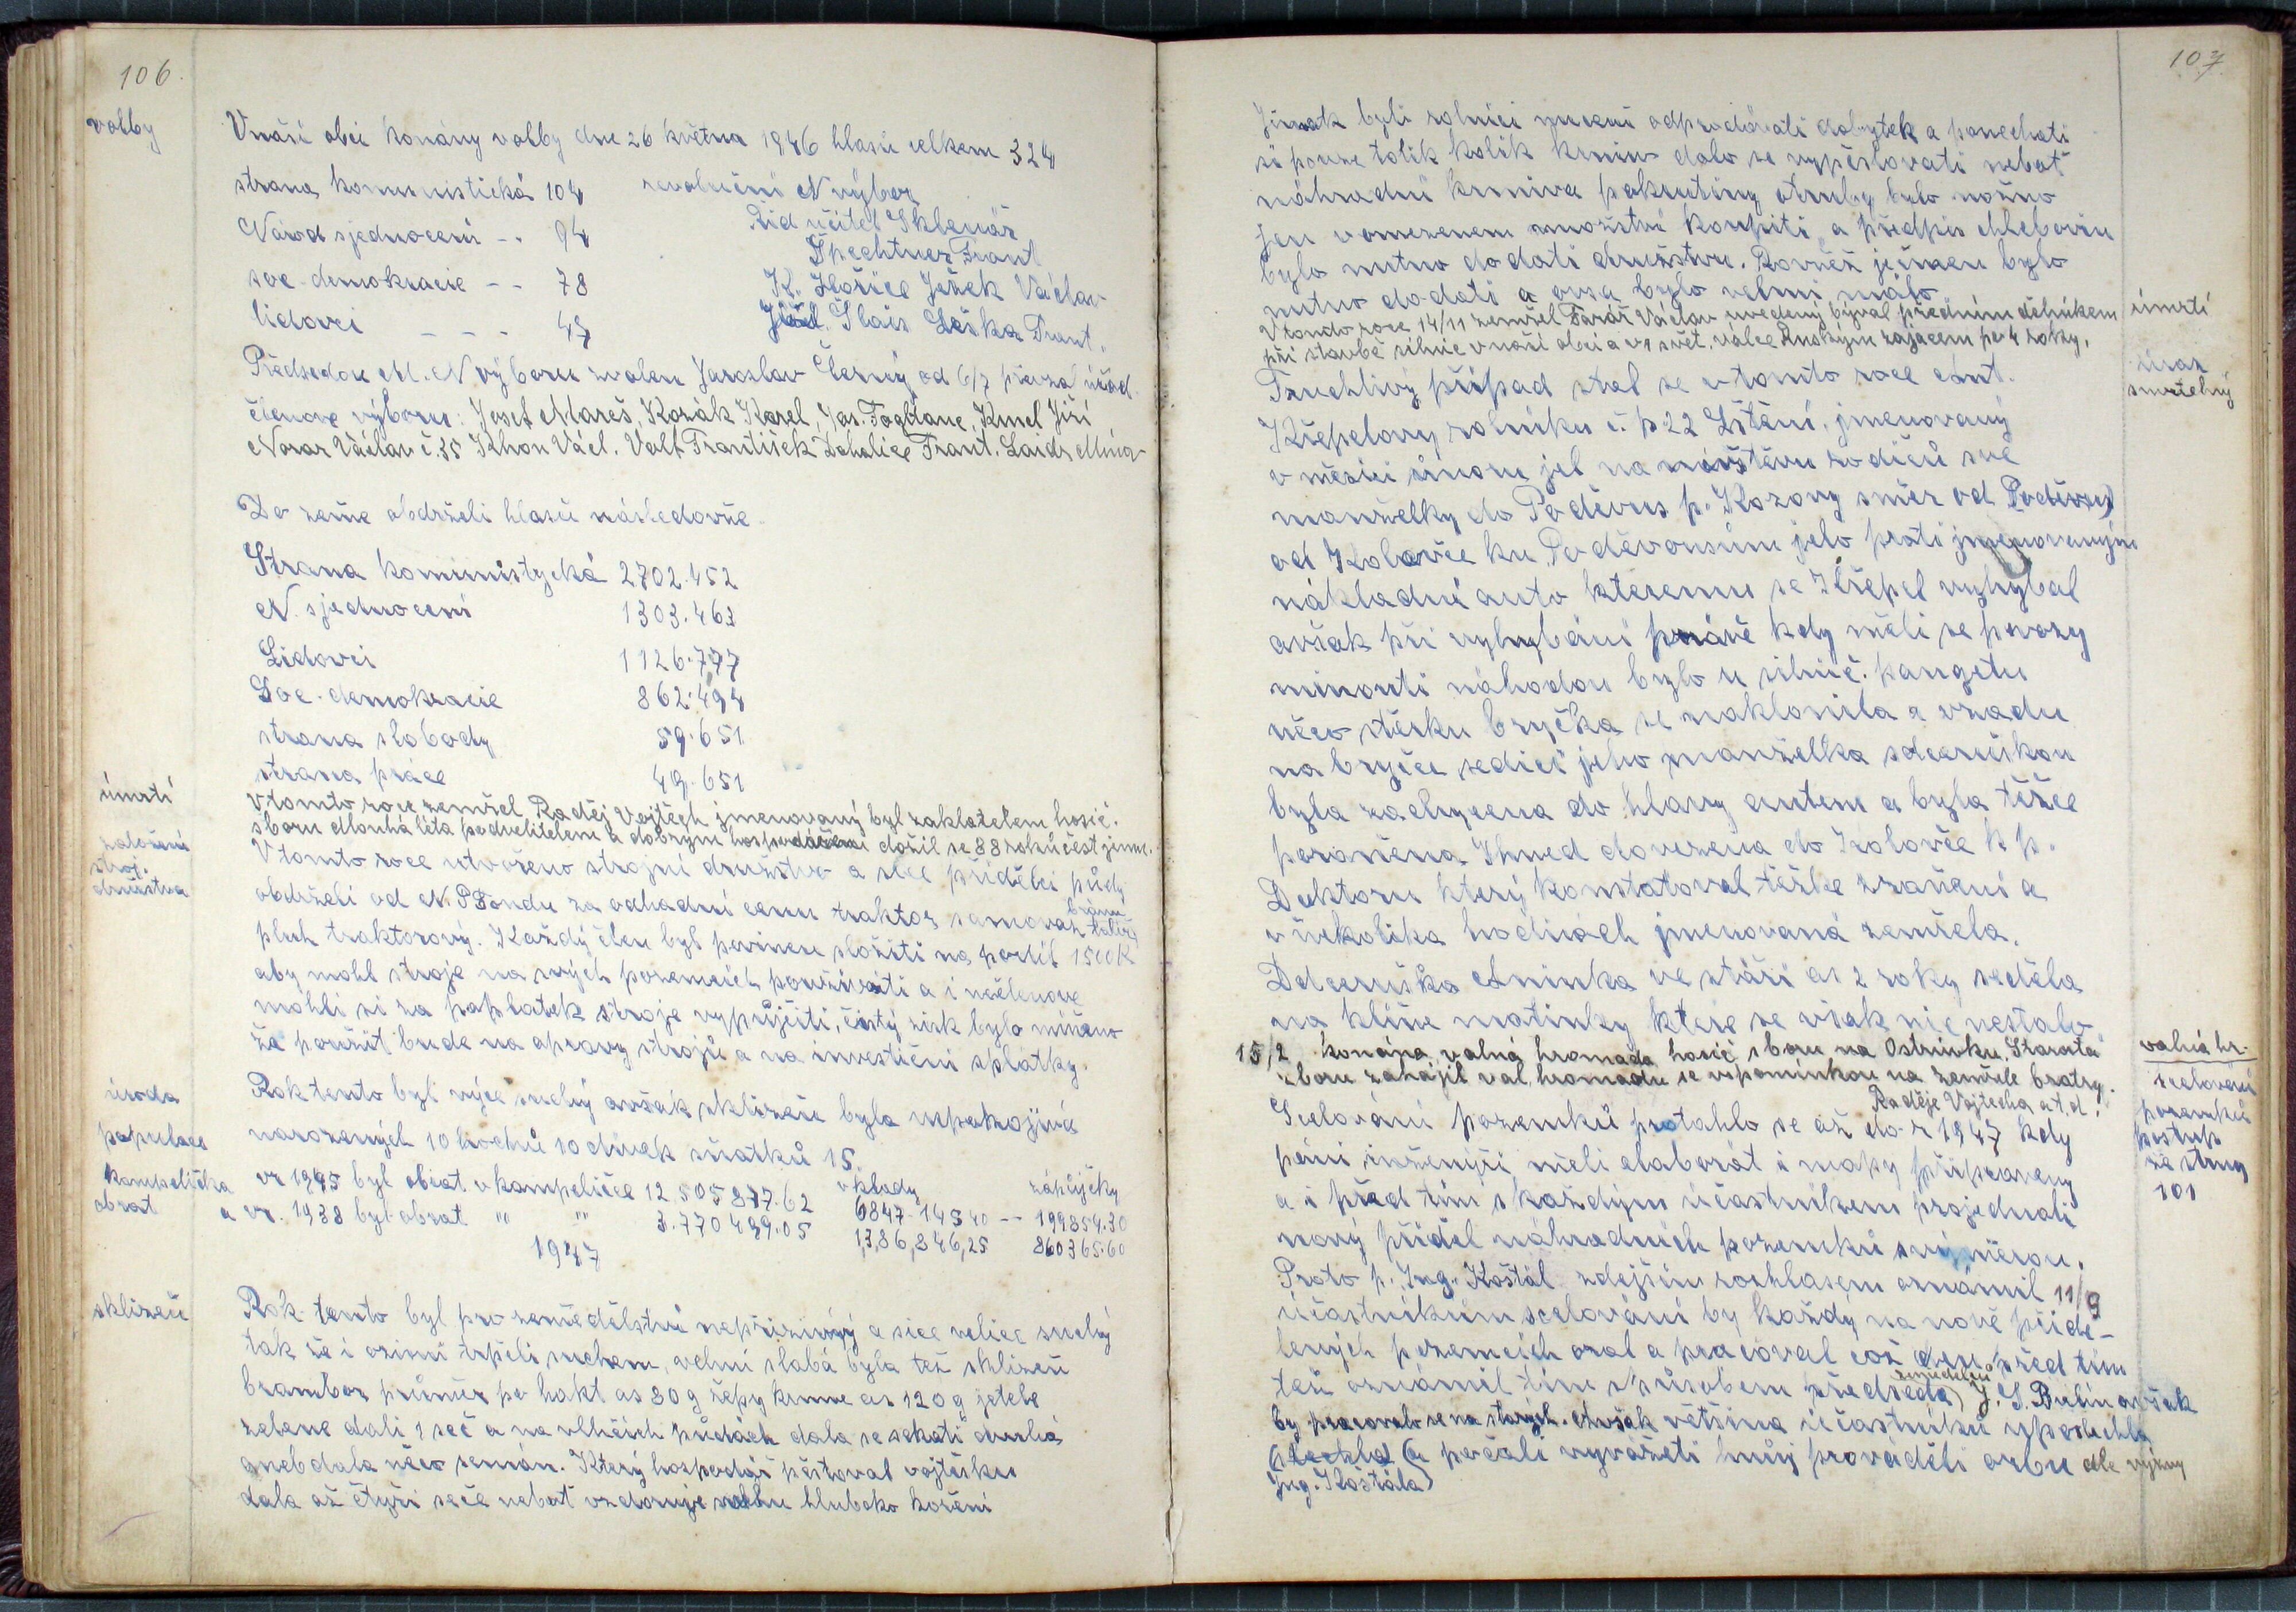 106.
volby
V naší obci konány volby dne 26 května 1946 hlasů celkem 324
strana komunistická 104 revoluční N výbor
Národ sjednocení - . 94 Říd učitel Sklenář
Špechtner Frant
soc. demokracie - - 78 K. Hořice Ježek Václav
lidovci - - - 47 Leška Frant.
Předsedou M. N výboru zvolen Jaroslav Černý od 6/7 převzal úřad
členove výboru: Josef Mareš, Kozák Karel, Jar. Fogl, Kunel Jiří
Václav č. 35 Khon Václ. Valt František Frant.
Do země obdrželi hlasů následovně
Strana komunistycká 2702.452
N. sjednocení 1303.463
Lidovci 1126.777
Soc. demokracie 862.494
strana slobody 59.651
strana práce 49.651
úmrtí
V tomto roce zemřel Raděj Vojtěch jmenovaný byl zakladatelem hasič.
sboru dlouhá léta podvelitelem a dobrým hospodářem dožil se 88 roků čest jemu.
založení
stroj.
družstva
V tomto roce utvořeno strojní družstvo a sice příděleci půdy
obdrželi od N. P Fondu za odhadní cenu traktor samovaz brány talíř
pluh traktorový. Každý člen byl povinen složiti na podíl 1500 K
aby mohl stroje na svých pozemcích používati a i nečlenove
mohli si za poplatek stroje vypůjčiti, čistý zisk bylo míněno
že použit bude na opravy strojů a na investiční splátky.
úroda
Rok tento byl více suchý avšak sklizeň byla uspokojivá
populace
narozených 10 hochů 10 dívek sňatků 15.
kampelička
obrat
v r 1945 byl obrat v kampeličce 12 505 877.62 vklady zápůjčky
6847.143 40 -- 199854.30
a v r. 1938 byl obrat " " 3.770 499.05 1,386,846,25 860365.60
1947
sklizeň
Rok tento byl pro zemědělství nepříznivý a sice velice suchý
tak že i ozimi trpěli suchem, velmi slabá byla též sklizeň
brambor průměr po hakt as 80 q řepy krmne as 120 q jetele
zelene dali 1 seč a na vlhčích půdách dala se sekati druhá
aneb dala něco semán. Který hospodář pěstoval vojtěšku
dala až čtyři seče nebot vzdoruje suchu hluboko koření
107
Jinak byli rolníci nuceni odprodávati dobytek a ponechati
si pouze tolik kolik krmiv dalo se vypěstovati nebot
náhradní krmiva pokrutiny otruby bylo možno
jen v omezenem množství koupiti a předpis chlebovin
bylo nutno dodati družstvu. Rovněž ječmen bylo
nutno dodati a ovsa bylo velmi málo
úmrtí
V tondo roce 14/11 zemřel Farář Václav uvedený býval předním dělníkem
při stavbě silnic v naší obci a v 1 svět. válce Ruským zajacem po 4 roky.
úraz
smrtelný
Truchlivý případ stal se v tomto roce
Křepelovy rolníku č. p. 22 Lštění. jmenovaný
v měsíci únoru jel na návštěvu rodičů sve
manželky do Poděvus p. Kozovy směr od Poděvus
od Kolovče ku Poděvousům jelo proti jmenovaným
nákladní auto kteremu se Křepel vyhýbal
avšak při vyhybání právě kdy měli se povozy
minouti náhodou bylo u silnič. pangetu
něco štěrku bryčka se naklonila a vzadu
na bryčce sedící jeho manželka s dceruškou
byla zachycena do hlavy autem a byla těžce
poraněna. Ihned dovezena do Kolovče k p.
Doktoru který konstatoval těžke zranění a
v několika hodinách jmenovaná zemřela.
Dcceruška Aninka ve stáří as 2 roky seděla
na klíně matinky ktere se však nic nestalo.
valná hr.
15/2 konána valná hromada hasič sboru na Ostrůvku. Starosta
sboru zahájil val hromadu se vzpomínkou na zemřele bratry.
Raděje Vojtecha a t. d.
scelování
pozemků
postup
ze strny
101
Scelování pozemků protahlo se až do r 1947 kdy
páni inženýři měli elaborát i mapy připraveny
a i před tím s každým účastníkem projednali
nový příděl náhradních pozemků svi měrou.
Proto p. Ing. Košťál zdejším rozhlasem oznámil 11/9
účastníkům scelování by každý na nově přide-
lených pozemcích oral a pracoval což den před tím
též oznámil tím způsobem předseda zemědělců J. S. avšak
by pracovalo se na starých. Avšak většina účastníků uposlechla
(a počali vyvážeti hnůj prováděli orbu dle výzvy
Ing. Košťála)